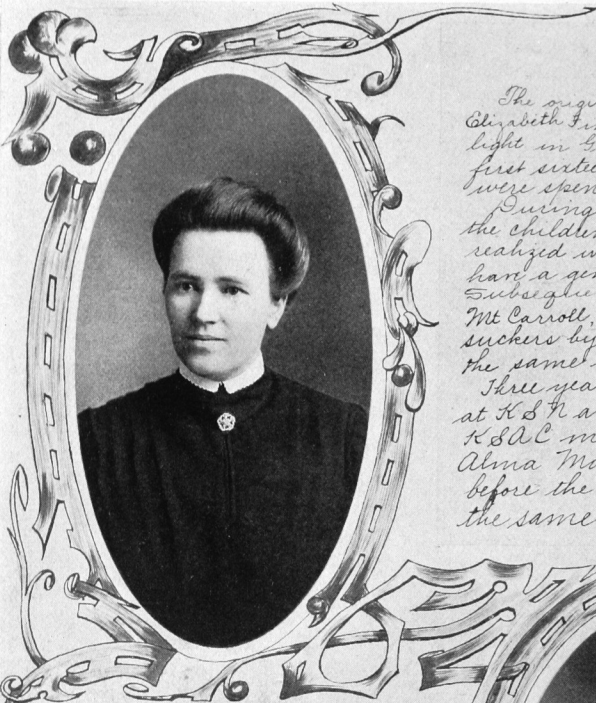 The orig
Elizabeth F
light in G
first sixtee
were spen
During
the childre
realized w
have a gen
Subseque
Mt Carroll,
suckers by
the same
Three yea
at K S N a
K S A C m
Alma Ma
before the
the same